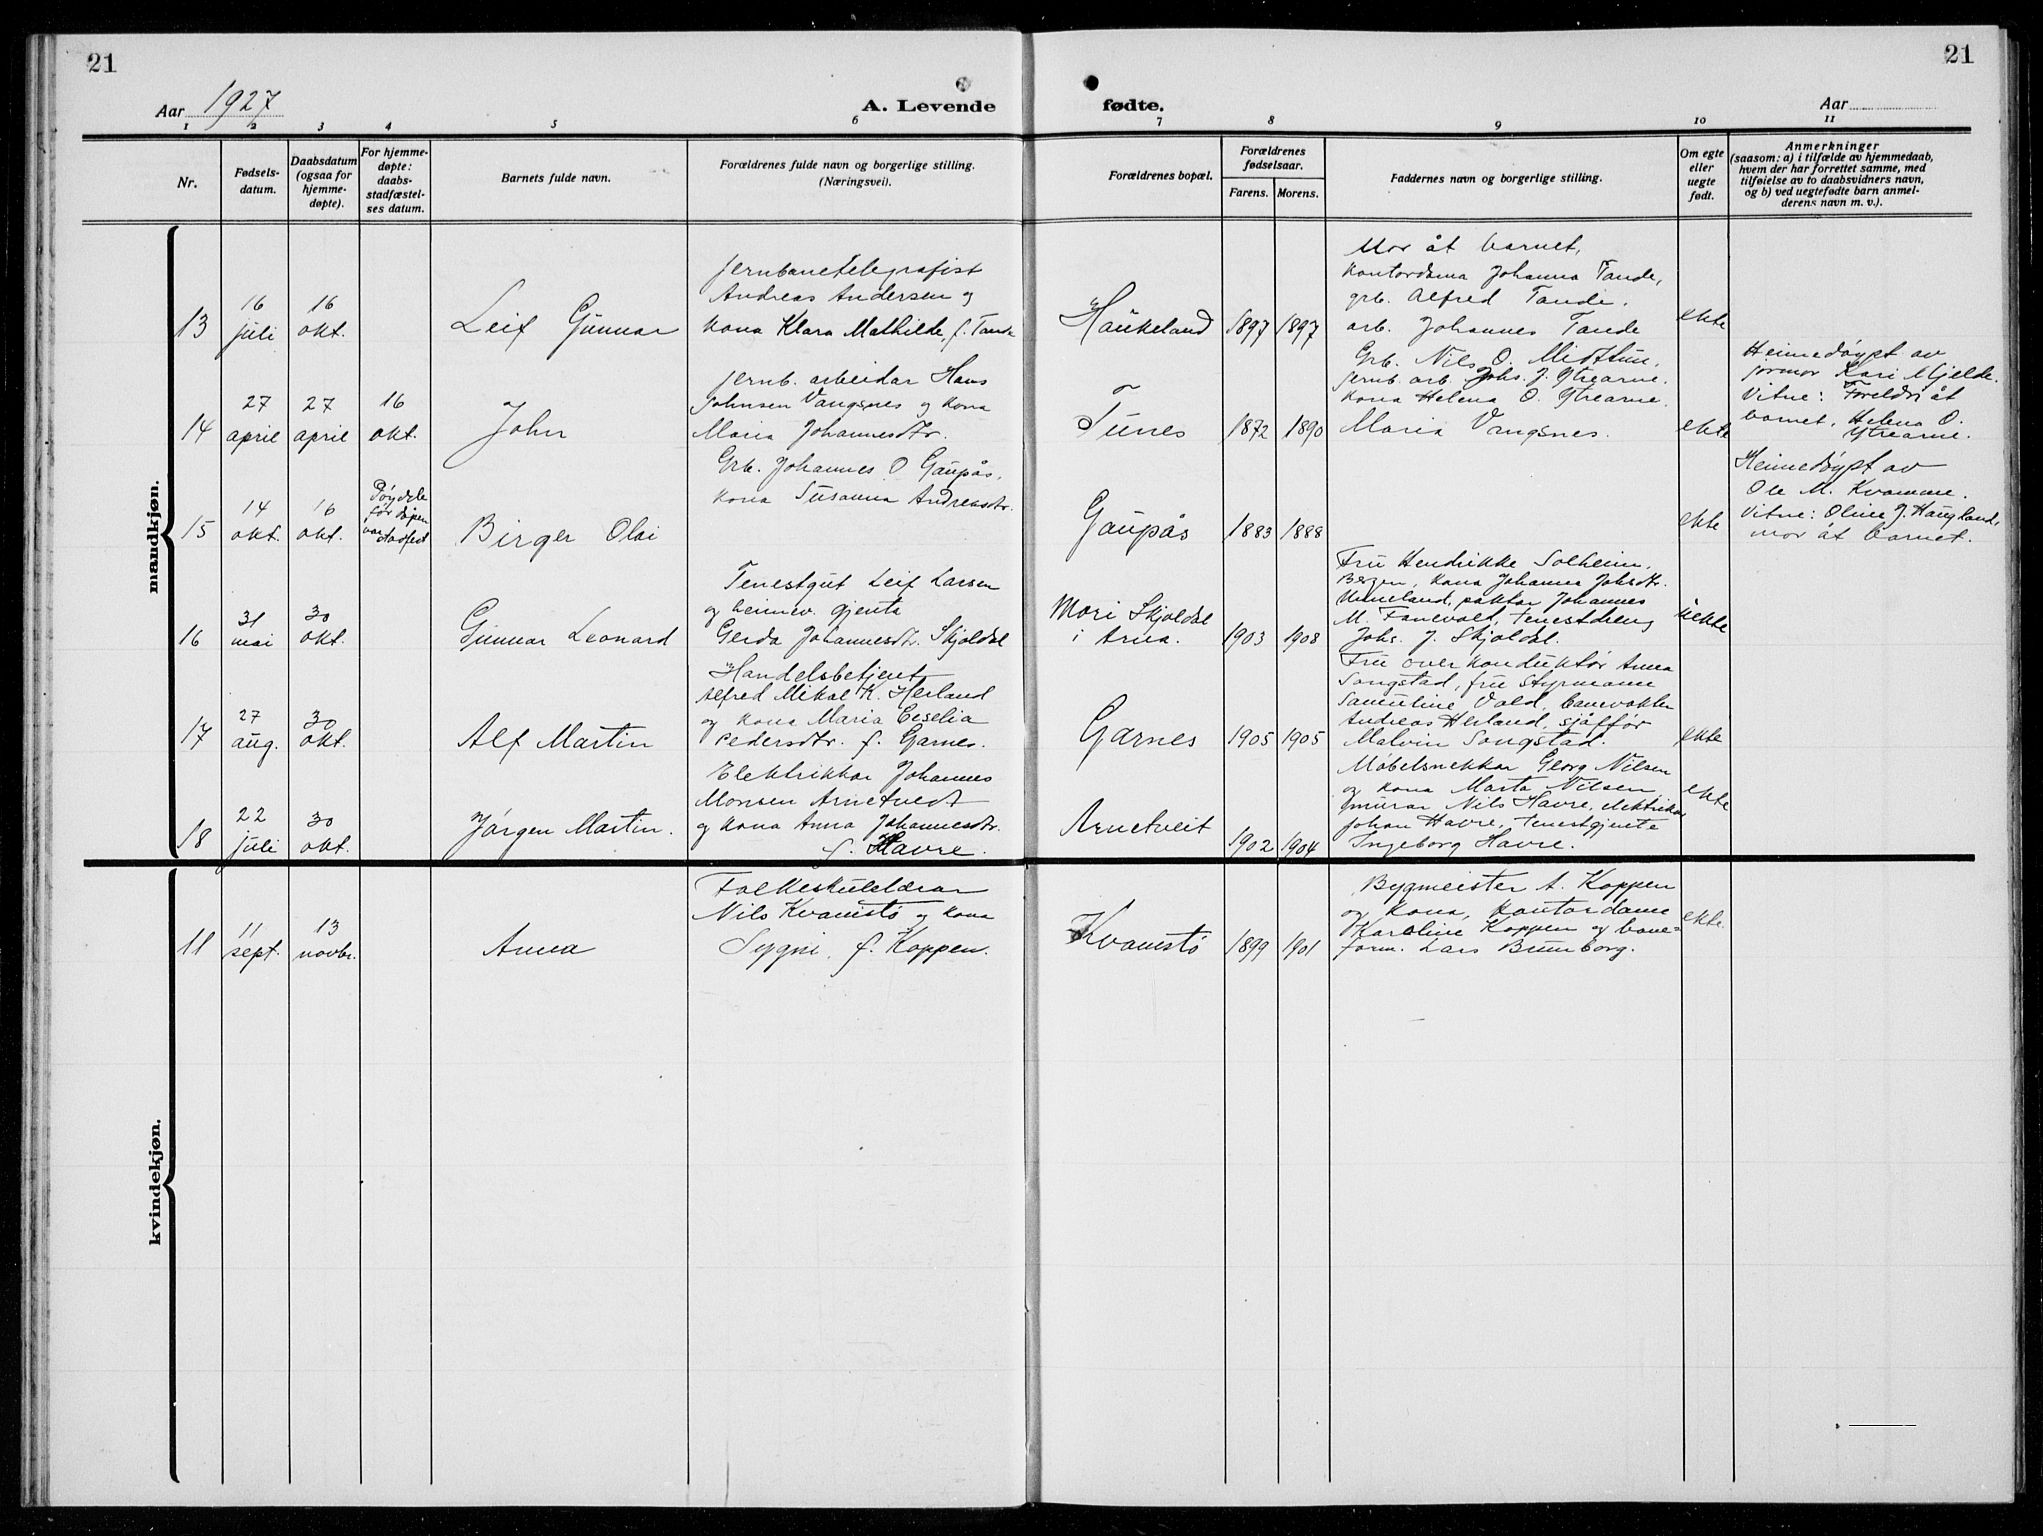 21
21
Aar 1927
A. Levende
fødte.
Aar
1 2 3 4 5 6 7 8 9 10 11
Nr.
Fødsels-
datum.
Daabsdatum
(ogsaa for
hjemme-
døpte).
For hjemme-
døpte:
daabs-
stadfæstel-
ses datum.
Barnets fulde navn.
Forældrenes fulde navn og borgerlige stilling.
(Næringsvei).
Forældrenes bopæl.
Forældrenes
fødselsaar.
Farens. Morens.
Faddernes navn og borgerlige stilling.
Om egte
eller
uegte
født.
Anmerkninger
(saasom: a) i tilfælde av hjemmedaab,
hvem der har forrettet samme, med
tilføielse av to daabsvidners navn,
og b) ved uegtefødte barn anmel-
derens navn m. v.).
mandkjøn.
13
16
juli
16
okt.
Leif Gunnar
Jernbanetelegrafist
Andreas Andersen og
kona Klara Mathilde, f. Tande
Haukeland
1897 1897
Mor åt barnet,
kontordama Johanna Tande,
grb. Alfred Tande.
arb. Johannes Tande
ekte
14
27
april
27
april
16
okt.
John
Jernb. arbeidar Hans
Johnsen Vangsnes og kona
Maria Johannesdtr.
Tunes
1872 1890
Grb. Nils O. Midthun.
jernb. arb. Johs. J. Ytrearne.
kona Helena O. Ytrearne.
Maria Vangsnes.
ekte
Heimedøypt av
jormor Kari Mjelde.
Vitne: Foreldri åt
barnet, Helena O.
Ytrearne.
15
14
okt.
16
okt.
Døydde
før dåpen
var stadfest
Birger Olai
Grb. Johannes O Gaupås,
kona Susanna Andreasdtr.
Gaupås
1883 1888
ekte
Heimedøypt av
Ole M. Kvamme.
Vitne: Oline J. Haugland,
mor åt barnet.
16
31
mai
30
okt.
Gunnar Leonard
Tenestgut Leif Larsen
og heimev. gjenta
Gerda Johannesdtr. Skjoldal
Mori Skjoldal
i Arna.
1903 1908
Fru Hendrikke Solheim,
Bergen, kona Johanna Johsdtr.
Unneland, paktar Johannes
M. Tenestdreng
Johs. J. Skjoldal.
uekte
17
27
aug.
30
okt.
Alf Martin
Handelsbetjent
Alfred Mikal K. Herland
og kona Maria Ceselia
Pedersdtr. f. Garnes.
Garnes
1905 1905
Fru overkonduktør Anna
Songstad, fru Styrmann
Samuline Vold, banevakter
Andreas Herland, sjåfför
Malvin Songstad.
ekte
18
22
juli
30
okt.
Jørgen Martin.
Elektrikkar Johannes
Monsen Arnetvedt
og kona Anna Johannesdtr.
f. Havre.
Arnetveit
1902 1904
Møbelsnekkar Georg Nilsen
og kona Marta Nilsen,
murar Nils Havre, elektrikar
Johan Havre, tenestgjente
Ingeborg Havre.
ekte
kvindekjøn.
11
11
sept.
13
novbr.
Anna
Folkeskulelærar
Nils Kvamstø og kona
Sygni, f. Koppen.
Kvamstø
1899 1901
Bygmeister A. Koppen
og kona, kontordame
Karoline Koppen og bane-
form. Lars Brunborg.
ekte.